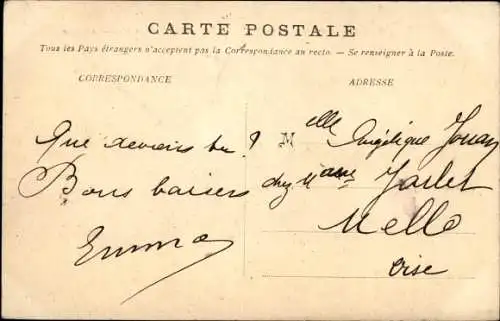 CARTE POSTALE
Tous les Pays étrangers n'acceptent pas la Correspondance au recto. — Se renseigner à la Poste.
CORRESPONDANCE
ADRESSE
Que deviens tu ?
Bons baisers
Emma
Melle Angélique Jouan
chez Mme Jarlet
Mello
Oise